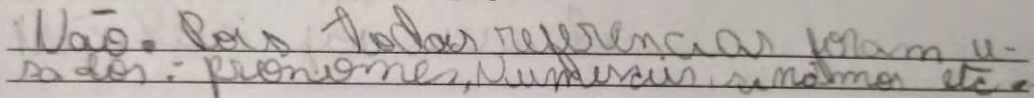 Não. Pois todas referencias foram u-
sados: pronomes, Numerais, sinônimos etc.